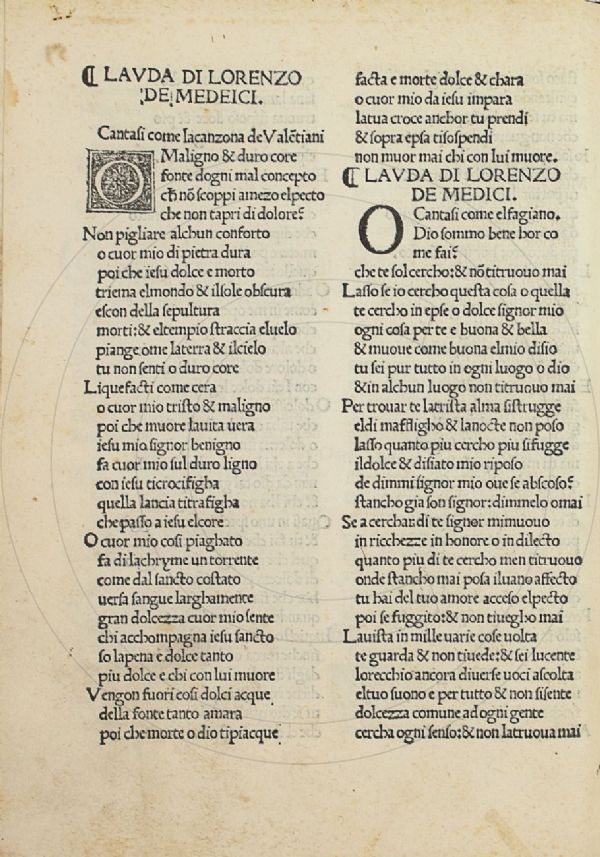 ¶ LAVDA DI LORENZO
DE MEDEICI.
Cantasi come lacanzona de Valẽtiani
O Maligno & duro core
fonte dogni mal concepto
ch̃ nõ scoppi amezo elpecto
che non tapri di dolore?
Non pigliare alchun conforto
o cuor mio di pietra dura
poi che iesu dolce e morto
triema elmondo & ilsole obscura
escon della sepultura
morti: & eltempio straccia eluelo
piange ome laterra & ilcielo
tu non senti o duro core
Liquefacti come cera
o cuor mio tristo & maligno
poi che muore lauita uera
iesu mio signor benigno
fa cuor mio sul duro ligno
con iesu ticrocifigha
quella lancia titrafigha
che passo a iesu elcore
O cuor mio cosi piaghato
fa di lachryme un torrente
come dal sancto costato
uersa sangue larghamente
gran dolcezza cuor mio sente
chi acchompagna iesu sancto
so lapena e dolce tanto
piu dolce e chi con lui muore
Vengon fuori cosi dolci acque
della fonte tanto amara
poi che morte o dio tipiacque
facta e morte dolce & chara
o cuor mio da iesu impara
latua croce anchor tu prendi
& sopra epsa tisospendi
non muor mai chi con lui muore.
¶ LAVDA DI LORENZO
DE MEDICI.
Cantasi come elfagiano.
O Dio sommo bene hor co
me fai?
che te sol cercho: & nõ titruouo mai
Lasso se io cercho questa cosa o quella
te cercho in epse o dolce signor mio
ogni cosa per te e buona & bella
& muoue come buona elmio disio
tu sei pur tutto in ogni luogo o dio
& in alchun luogo non titruouo mai
Per trouar te latrista alma sistrugge
eldi mafflígho & lanocte non poso
lasso quanto piu cercho piu sifugge
ildolce & disiato mio riposo
de dimmi signor mio oue se abscoso?
stancho gia son signor: dimmelo omai
Se a cerchar di te signor mimuouo
in ricchezze in honore o in dilecto
quanto piu di te cercho men titruouo
onde stancho mai posa iluano affecto
tu hai del tuo amore acceso elpecto
poi se fuggito: & non tiuegho mai
Lauista in mille uarie cose uolta
te guarda & non tiuede: & sei lucente
lorecchio ancora diuerse uoci ascolta
eltuo suono e per tutto & non sisente
dolcezza comune ad ogni gente
cercha ogni senso: & non latruoua mai